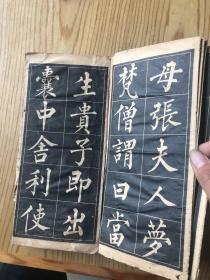 母張夫人夢
梵僧謂曰當
生貴子即出
囊中舍利使